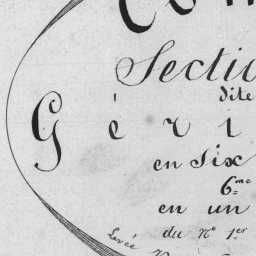 Sectio
dite
Géri
en Six
6me
en un
du No 1er
Levée